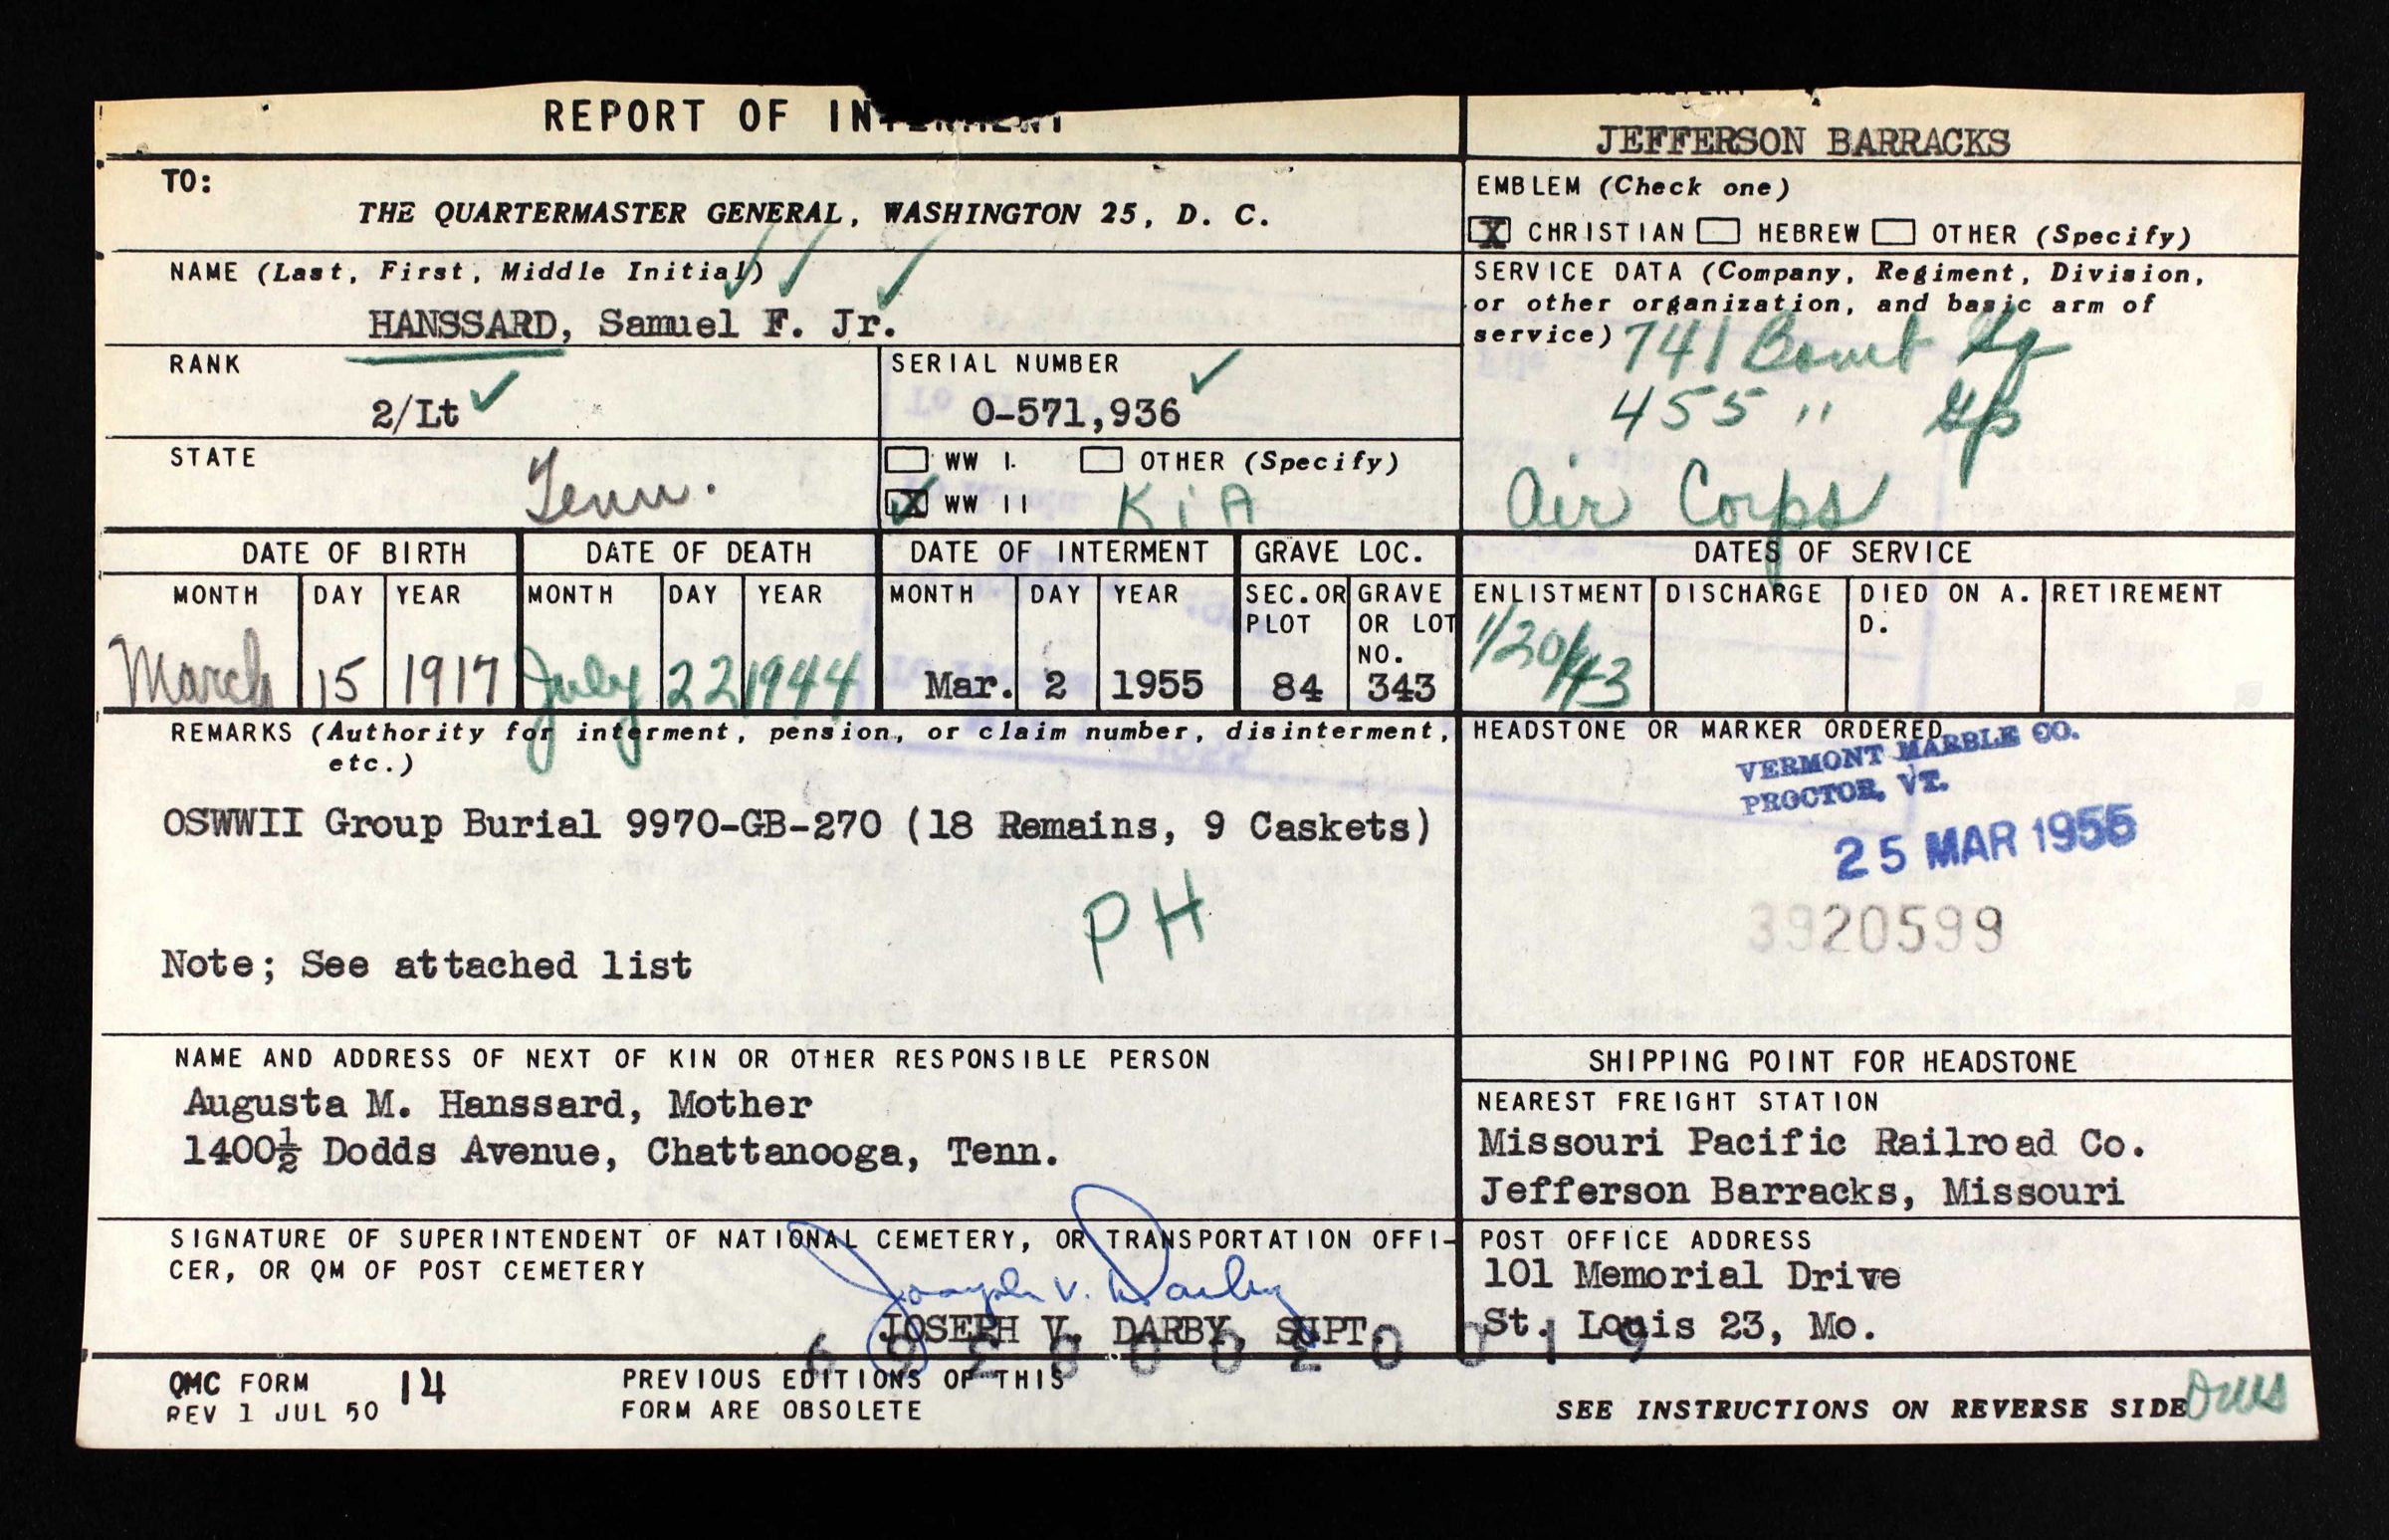 REPORT OF INTERMENT
JEFFERSON BARRACKS
TO:
THE QUARTERMASTER GENERAL, WASHINGTON 25, D. C.
EMBLEM (Check one)
X CHRISTIAN HEBREW OTHER (Specify)
NAME (Last, First, Middle Initial)
HANSSARD, Samuel F. Jr.
SERVICE DATA (Company, Regiment, Division,
or other organization, and basic arm of
service) 741 Bomb Sq
455 " Gp
Air Corps
RANK
2/Lt
SERIAL NUMBER
O-571,936
STATE
Tenn.
WW I. OTHER (Specify)
X WW II KIA
DATE OF BIRTH
DATE OF DEATH
DATE OF INTERMENT
GRAVE LOC.
DATES OF SERVICE
MONTH DAY YEAR
MONTH DAY YEAR
MONTH DAY YEAR
SEC. OR PLOT
GRAVE OR LOT NO.
ENLISTMENT DISCHARGE DIED ON A. D. RETIREMENT
March 15 1917
July 22 1944
Mar. 2 1955
84 343
1/20/43
REMARKS (Authority for interment, pension, or claim number, disinterment,
etc.)
OSWWII Group Burial 9970-GB-270 (18 Remains, 9 Caskets)
PH
Note; See attached list
HEADSTONE OR MARKER ORDERED
VERMONT MARBLE CO.
PROCTOR, VT.
25 MAR 1955
3920599
NAME AND ADDRESS OF NEXT OF KIN OR OTHER RESPONSIBLE PERSON
Augusta M. Hanssard, Mother
1400½ Dodds Avenue, Chattanooga, Tenn.
SHIPPING POINT FOR HEADSTONE
NEAREST FREIGHT STATION
Missouri Pacific Railroad Co.
Jefferson Barracks, Missouri
SIGNATURE OF SUPERINTENDENT OF NATIONAL CEMETERY, OR TRANSPORTATION OFFI-
CER, OR QM OF POST CEMETERY
Joseph V. Darby
JOSEPH V. DARBY, SUPT.
POST OFFICE ADDRESS
101 Memorial Drive
St. Louis 23, Mo.
QMC FORM 14
REV 1 JUL 50
PREVIOUS EDITIONS OF THIS
FORM ARE OBSOLETE
SEE INSTRUCTIONS ON REVERSE SIDE